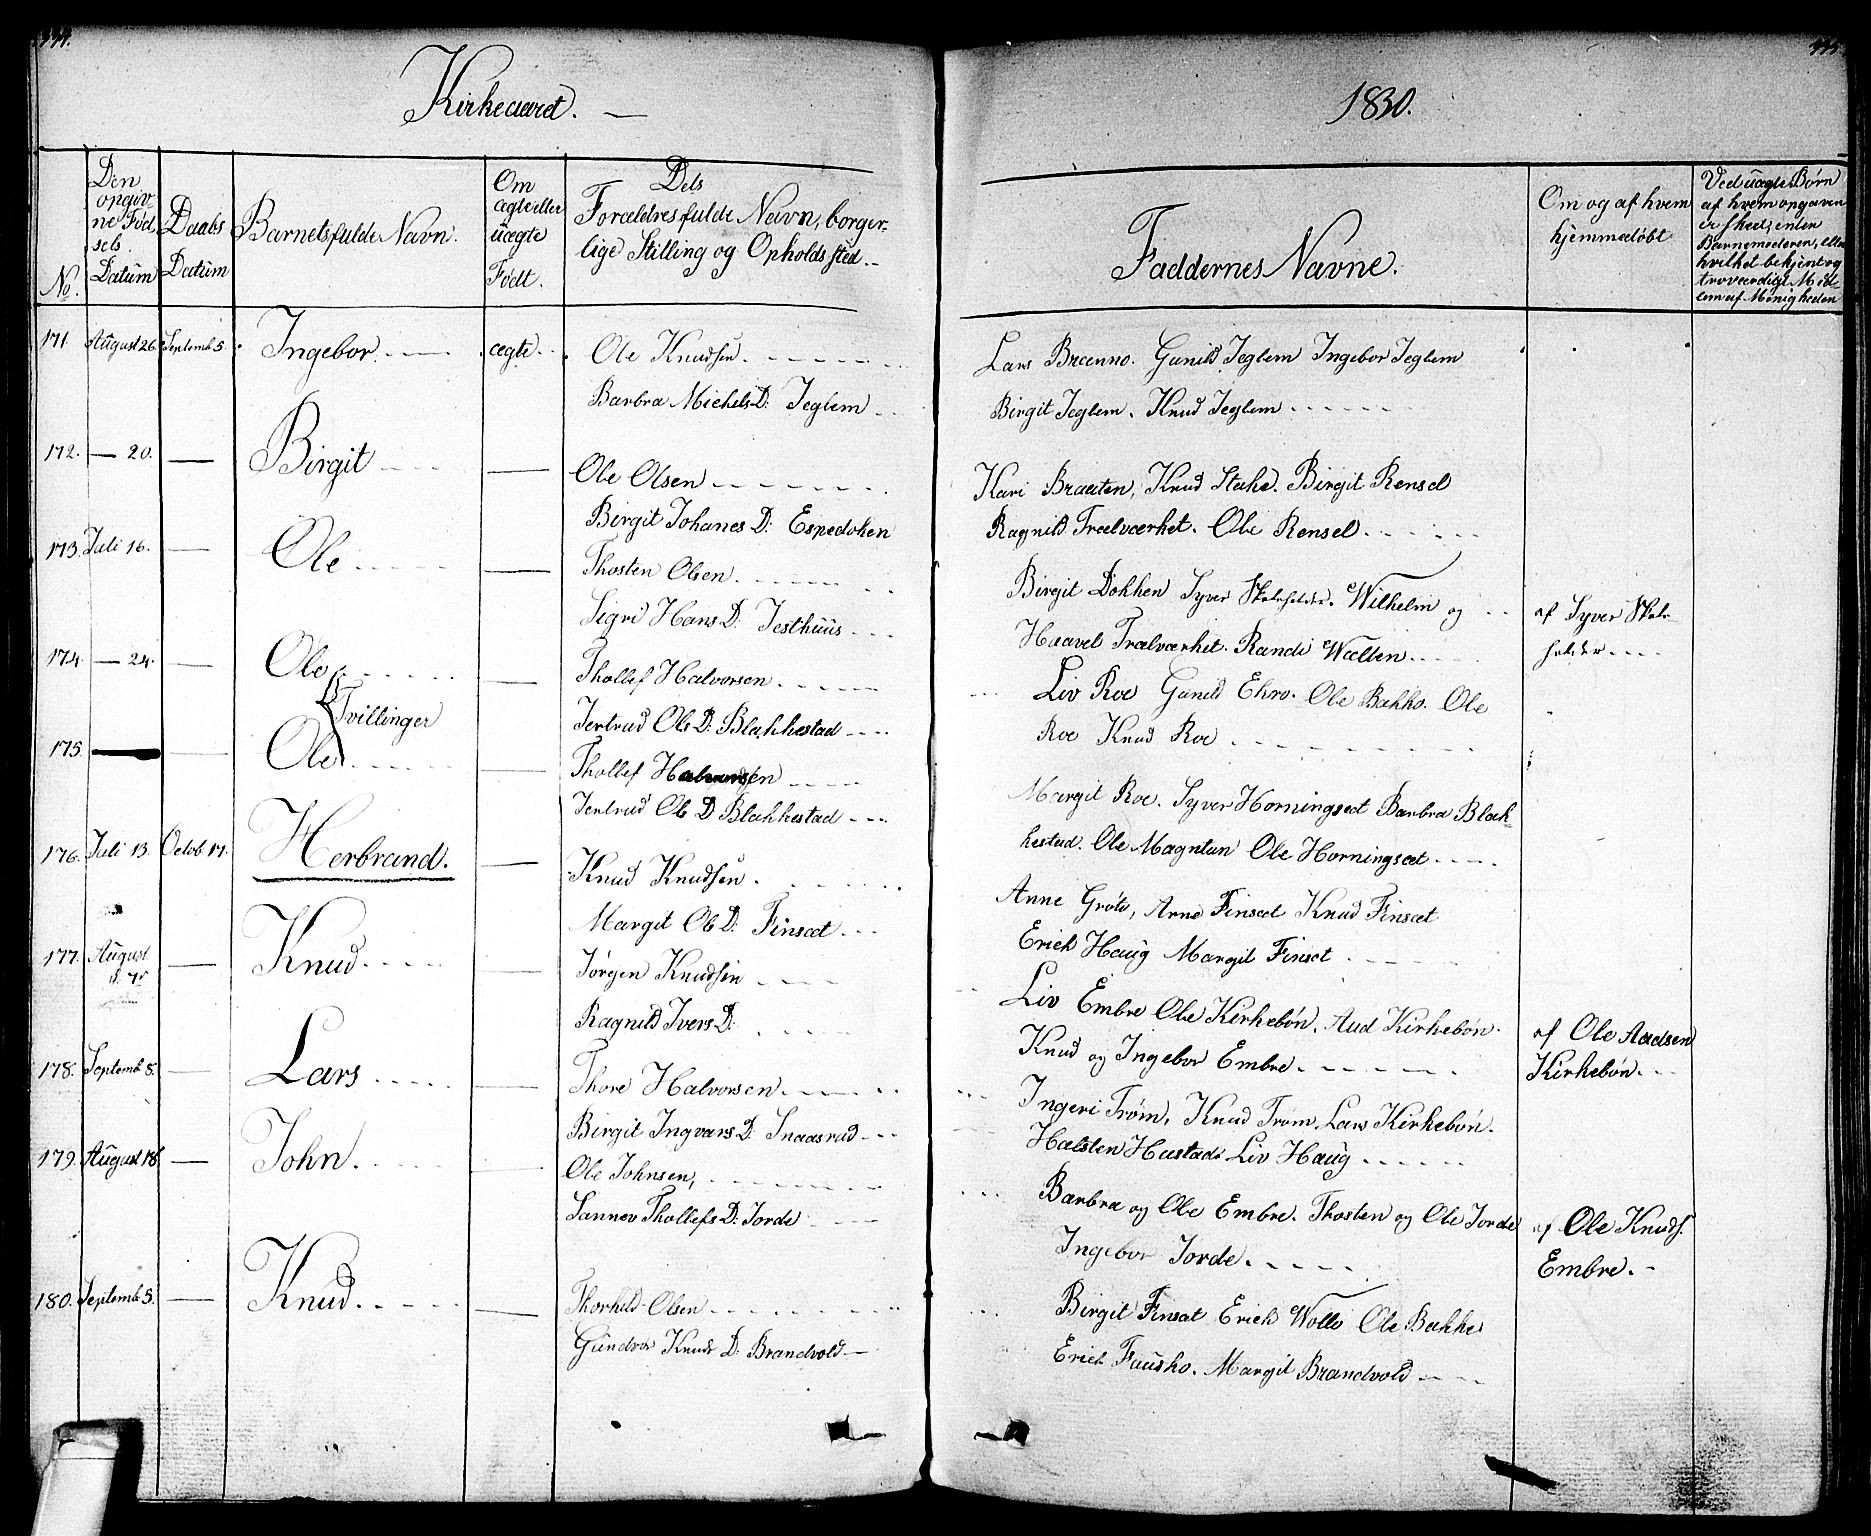 Kirkeaaret. —
1830.
No.
Den
opgiv-
ne Fød-
sels
Datum
Daabs
Datum
Barnets fulde Navn.
Om
ægte eller
uægte
Født.
Dets
Forældres fulde Navn, borger-
lige Stilling og Opholdssted.
Faddernes Navne.
Om og af hvem
hjemmedøbt
Ved uægte Børn
af hvem opgaven
er skeet, enten
Barnemoderen, eller
hvilket bekjent og
troværdigt Med-
lem af Menigheden
171. August 26. Septemb 5. Ingebor. ægte. Ole Knudsen
Barbra Michels D: Jeglem
Lars Brænno. Gunild Jeglem Ingebor Jeglem
Birgit Jeglem. Knud Jeglem
172. — 20. — Birgit — Ole Olsen
Birgit Johanes D: Espedoken
Kari Braaten, Knud Stake. Birgit Rensel
Ragnild Trælværket. Ole Rensel
173. Juli 16. — Ole — Thosten Olsen
Sigri Hans D: Jesthuus
Birgit Dokken Syver Skoleholder. Wilhelm og
Haavel Trælværket. Randi Wællen
af Syver Skole-
holder
174. — 24. — Ole — Thollef Halvorsen
Tvillinger
Jertrud Ols D: Blakkestad
Liv Roe Gunild Ekro. Ole Bakko. Ole
Roe Knud Roe
175. — — Ole — Thollef Halvorsen
Jertrud Ols D Blakkestad
Margit Roe. Syver Horningsæt Barbra Blak-
kestad. Ole Magntun Ole Horningsæt
176. Juli 13. Octob 17. Herbrand. — Knud Knudsen
Margit Ols D: Finsæt
Anne Grøte, Arne Finsæt Knud Finsæt
Erich Haug Margit Finset
177. August
d. 7de — Knud — Jørgen Knudsen
Ragnild Ivers D:
Liv Embre Ole Kirkebøn. Aud Kirkebøn.
Knud og Ingebor Embre
af Ole Aadsen
Kirkebøn.
178. Septemb 8. — Lars — Thore Halvorsen
Birgit Ingvars D: Snaasrud
Ingeri Trøm, Knud Trøm. Lars Kirkebøn.
Halsten Hustad. Liv Haug
179. August 18. — John. — Ole Johnsen,
Sannev Thollefs D: Jorde
Barbra og Ole Embre. Thosten og Ole Jorde
Ingebor Jorde
af Ole Knuds.
Embre.
180. Septemb 5. — Knud. — Thorkild Olsen
Gundvor Knuds D: Brandvold
Birgit Finsat Erick Wollo Ole Bakke
Erick Fausko. Margit Brandvold